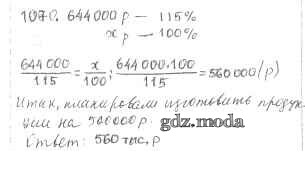 1070. 644000 р — 115%
х р — 100%
644 000 / 115 = x / 100 ; 644 000 · 100 / 115 = 560 000 (р)
Итак, планировали изготовить продук
ции на 560000 р.
gdz.moda
Ответ: 560 тыс, р